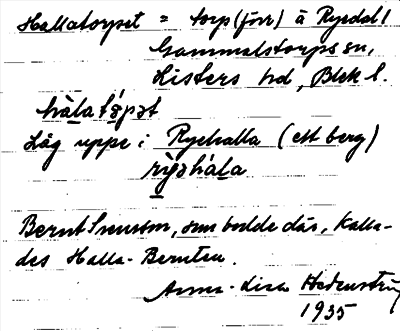 Hallatorpet = torp (förr) å Ryedal 1
Gammalstorps sn,
Listers hd, Blek l.
hàlatǫ̀rpət
Låg uppe i Ryehalla (ett berg)
rỳəhàla
Bernt Svensson, som bodde där, kalla-
des Halla-Bernten.
Anna-Lisa
1935